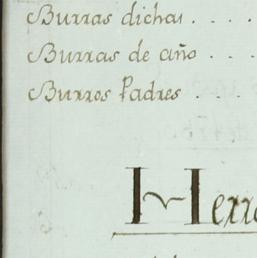 Burras dichas . . . .
Burras de año . . .
Burros Padres . . . .
Herra